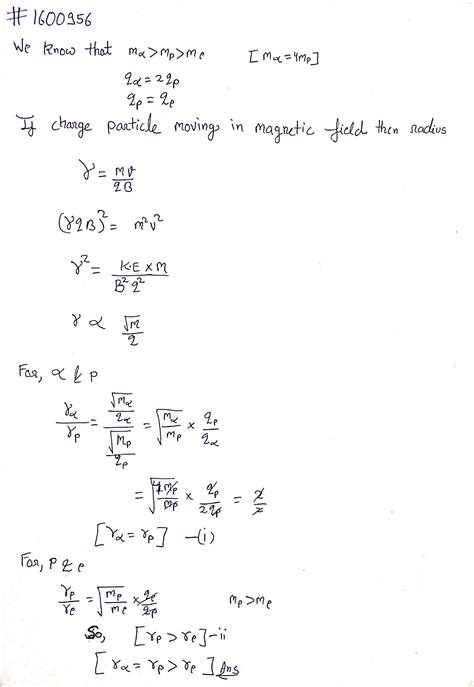 #1600956
We know that mα>mp>me [mα=4mp]
qα=2qp
qp=qe
If charge particle moving in magnetic field then radius
r = mv/qB
(rqB)² = m²v²
r² = K·E×M/B²q²
r ∝ √m/q
For, α & p
rα/rp = (√mα/qα)/(√mp/qp) = √(mα/mp) × qp/qα
= √(4mp/mp) × qp/2qp = 2/2
[rα = rp] –(i)
For, p & e
rp/re = √(mp/me) × qe/qp mp>me
So, [rp > re]–ii
[rα = rp > re] Ans